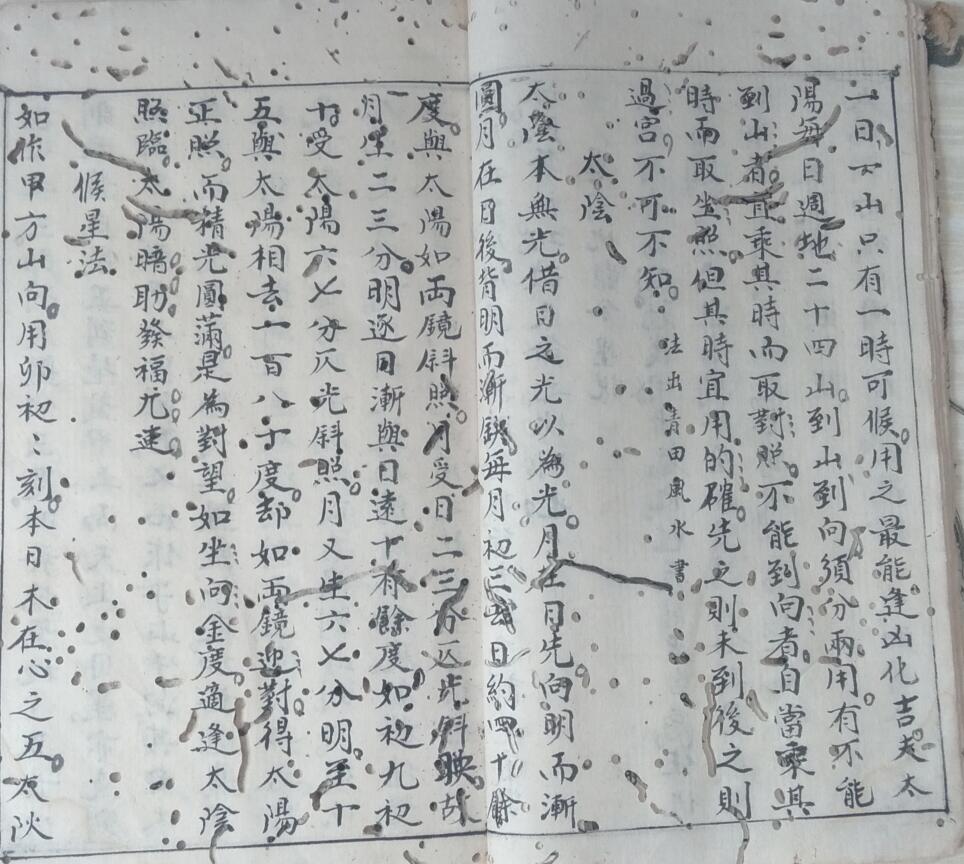 一日一山只有一時可候用之最能逢凶化吉夫太
陽每日週地二十四山到山到向須分兩用有不能
到山者宜乘其時而取對照不能到向者自當乘其
時而取坐照但其時宜用的確先之則未到後之則
過宮不可不知 法出青田風水書
太陰
太陰本無光借日之光以為光月在日先向明而漸
圓月在日後背明而漸缺每月初三四日約四十餘
度與太陽如両鏡斜照月受日二三分仄光斜映故
月生二三分明逐日漸與日遠十有餘度如初九初
十受太陽六七分仄光斜照月又生六七分明至十
五與太陽相去一百八十度却如両鏡迎對得太陽
正照而精光圓滿是為對望如坐向金度適逢太陰
照臨太陽暗助發福尤速
候星法
如作甲方山向用卯初〻刻本日木在心之五太陰